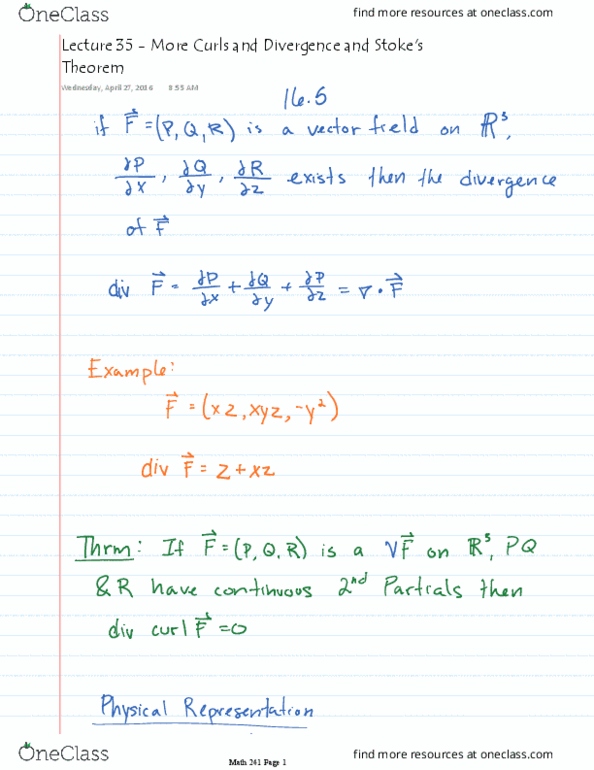 OneClass
find more resources at oneclass.com
Lecture 35 - More Curls and Divergence and Stoke's
Theorem
Wednesday, April 27, 2016 8:55 AM
16.5
if F⃗ = (P, Q, R) is a vector field on ℝ³,
∂P/∂x, ∂Q/∂y, ∂R/∂z exists then the divergence
of F⃗
div F⃗ = ∂P/∂x + ∂Q/∂y + ∂P/∂z = ∇ · F⃗
Example:
F⃗ = (xz, xyz, -y²)
div F⃗ = z + xz
Thrm: If F⃗ = (P, Q, R) is a VF⃗ on ℝ³, PQ
& R have continuous 2nd Partials then
div curl F⃗ = 0
Physical Representation
OneClass
Math 241 Page 1
find more resources at oneclass.com